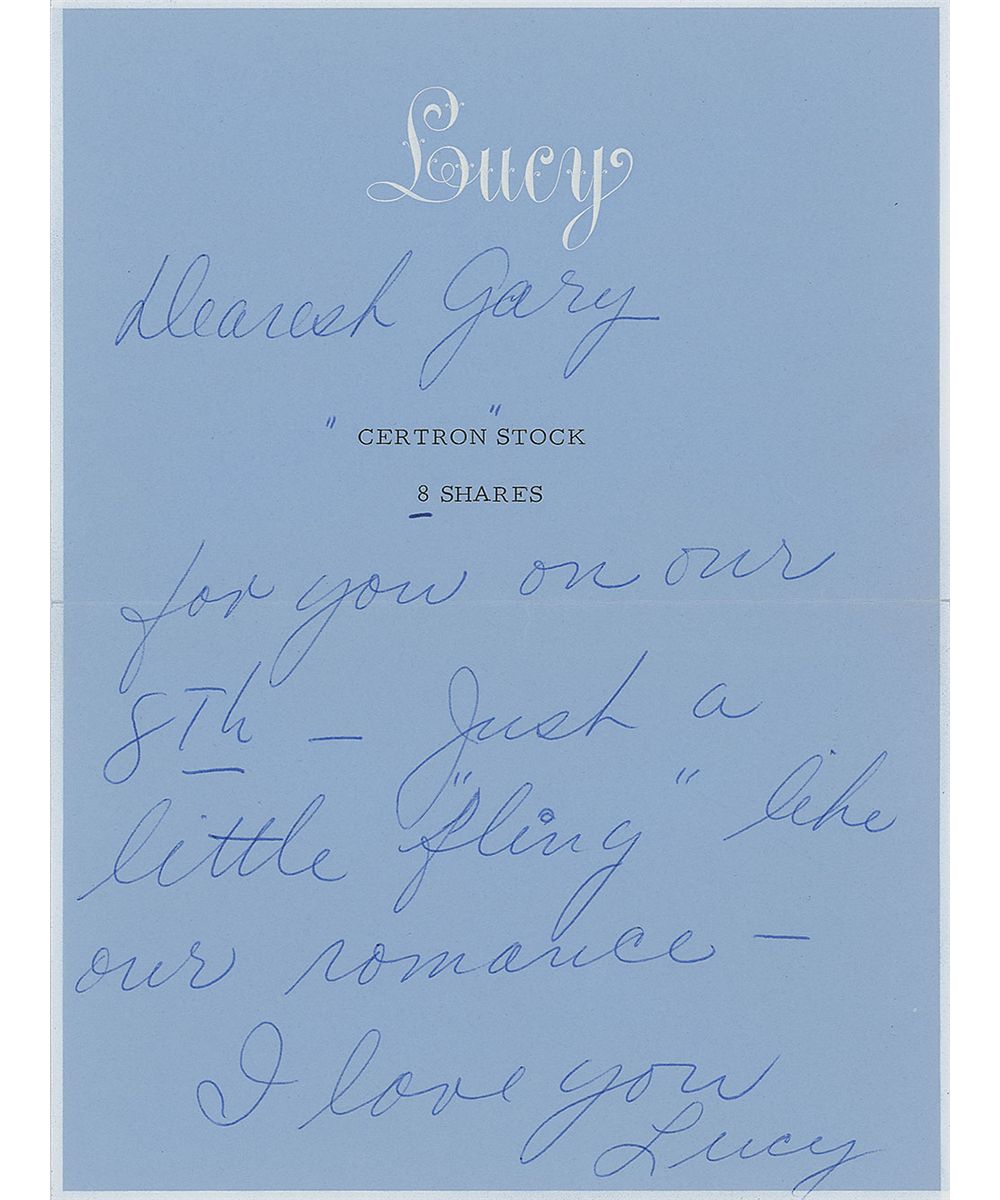 Lucy
Dearest Gary
"CERTRON" STOCK
8 SHARES
for you on our
8Th — Just a
little "fling" like
our romance —
I love you
Lucy